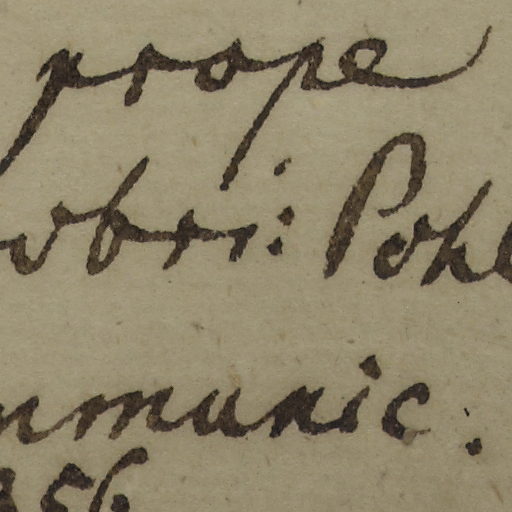 prope
obri: Pohl
mmunic.
856.